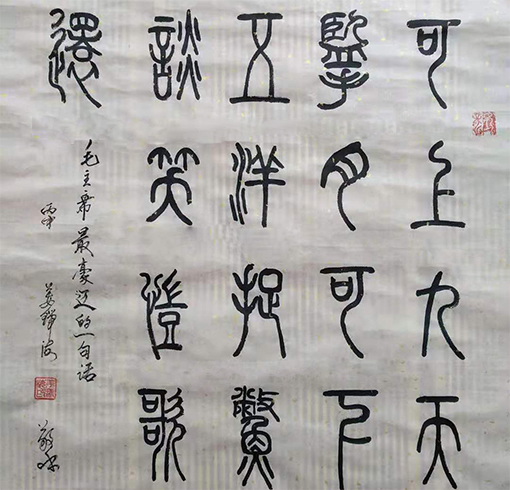 可上九天
擥月可下
五洋捉鱉
談笑歌
還
毛主席最豪迈的一句话
丙申